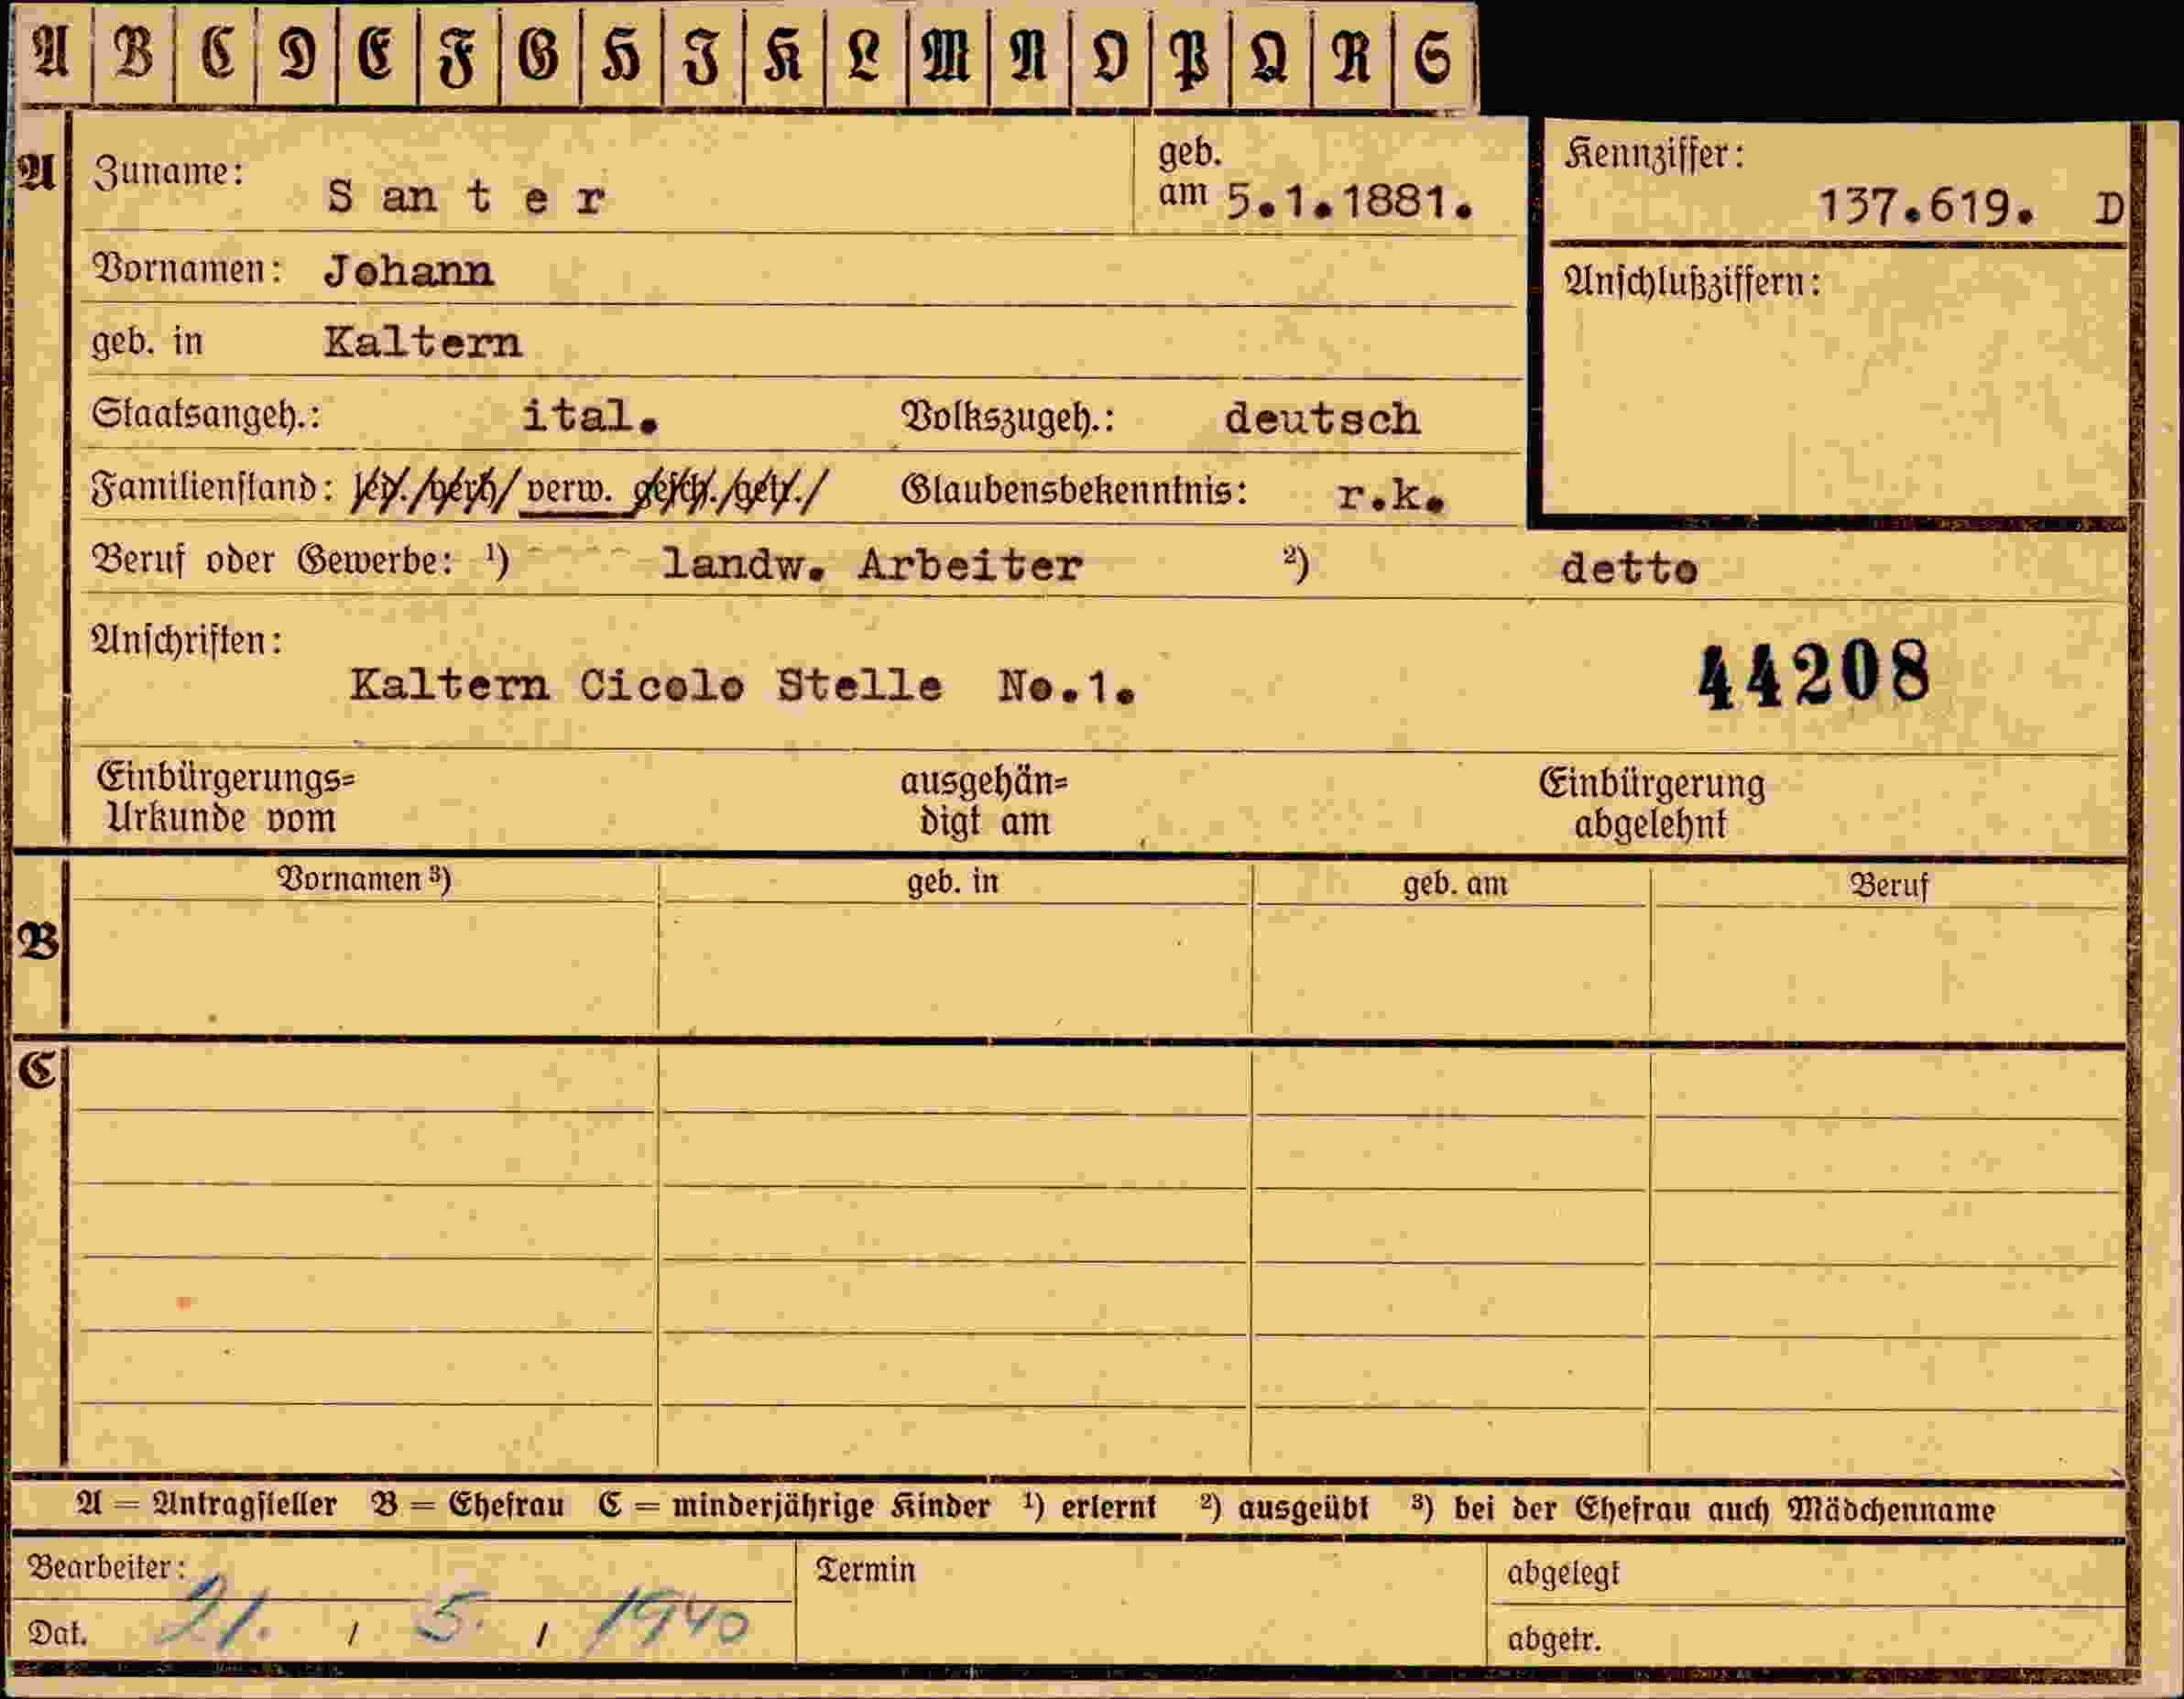 A B C D E F G H I K L M N O P Q R S
A Zuname: S an t e r geb. am 5.1.1881. Kennziffer: 137.619. D
Vornamen: Johann Anschlußziffern:
geb. in Kaltern
Staatsangeh.: ital. Volkszugeh.: deutsch
Familienstand: led./verh/ verw. gesch./getr./ Glaubensbekenntnis: r.k.
Beruf oder Gewerbe: ¹) landw. Arbeiter ²) detto
Anschriften:
Kaltern Cicolo Stelle No.1. 44208
Einbürgerungs= ausgehän= Einbürgerung
Urkunde vom digt am abgelehnt
Vornamen ³) geb. in geb. am Beruf
B
C
A = Antragsteller B = Ehefrau C = minderjährige Kinder ¹) erlernt ²) ausgeübt ³) bei der Ehefrau auch Mädchenname
Bearbeiter: Termin abgelegt
Dat. 21. / 5. / 1940 abgetr.